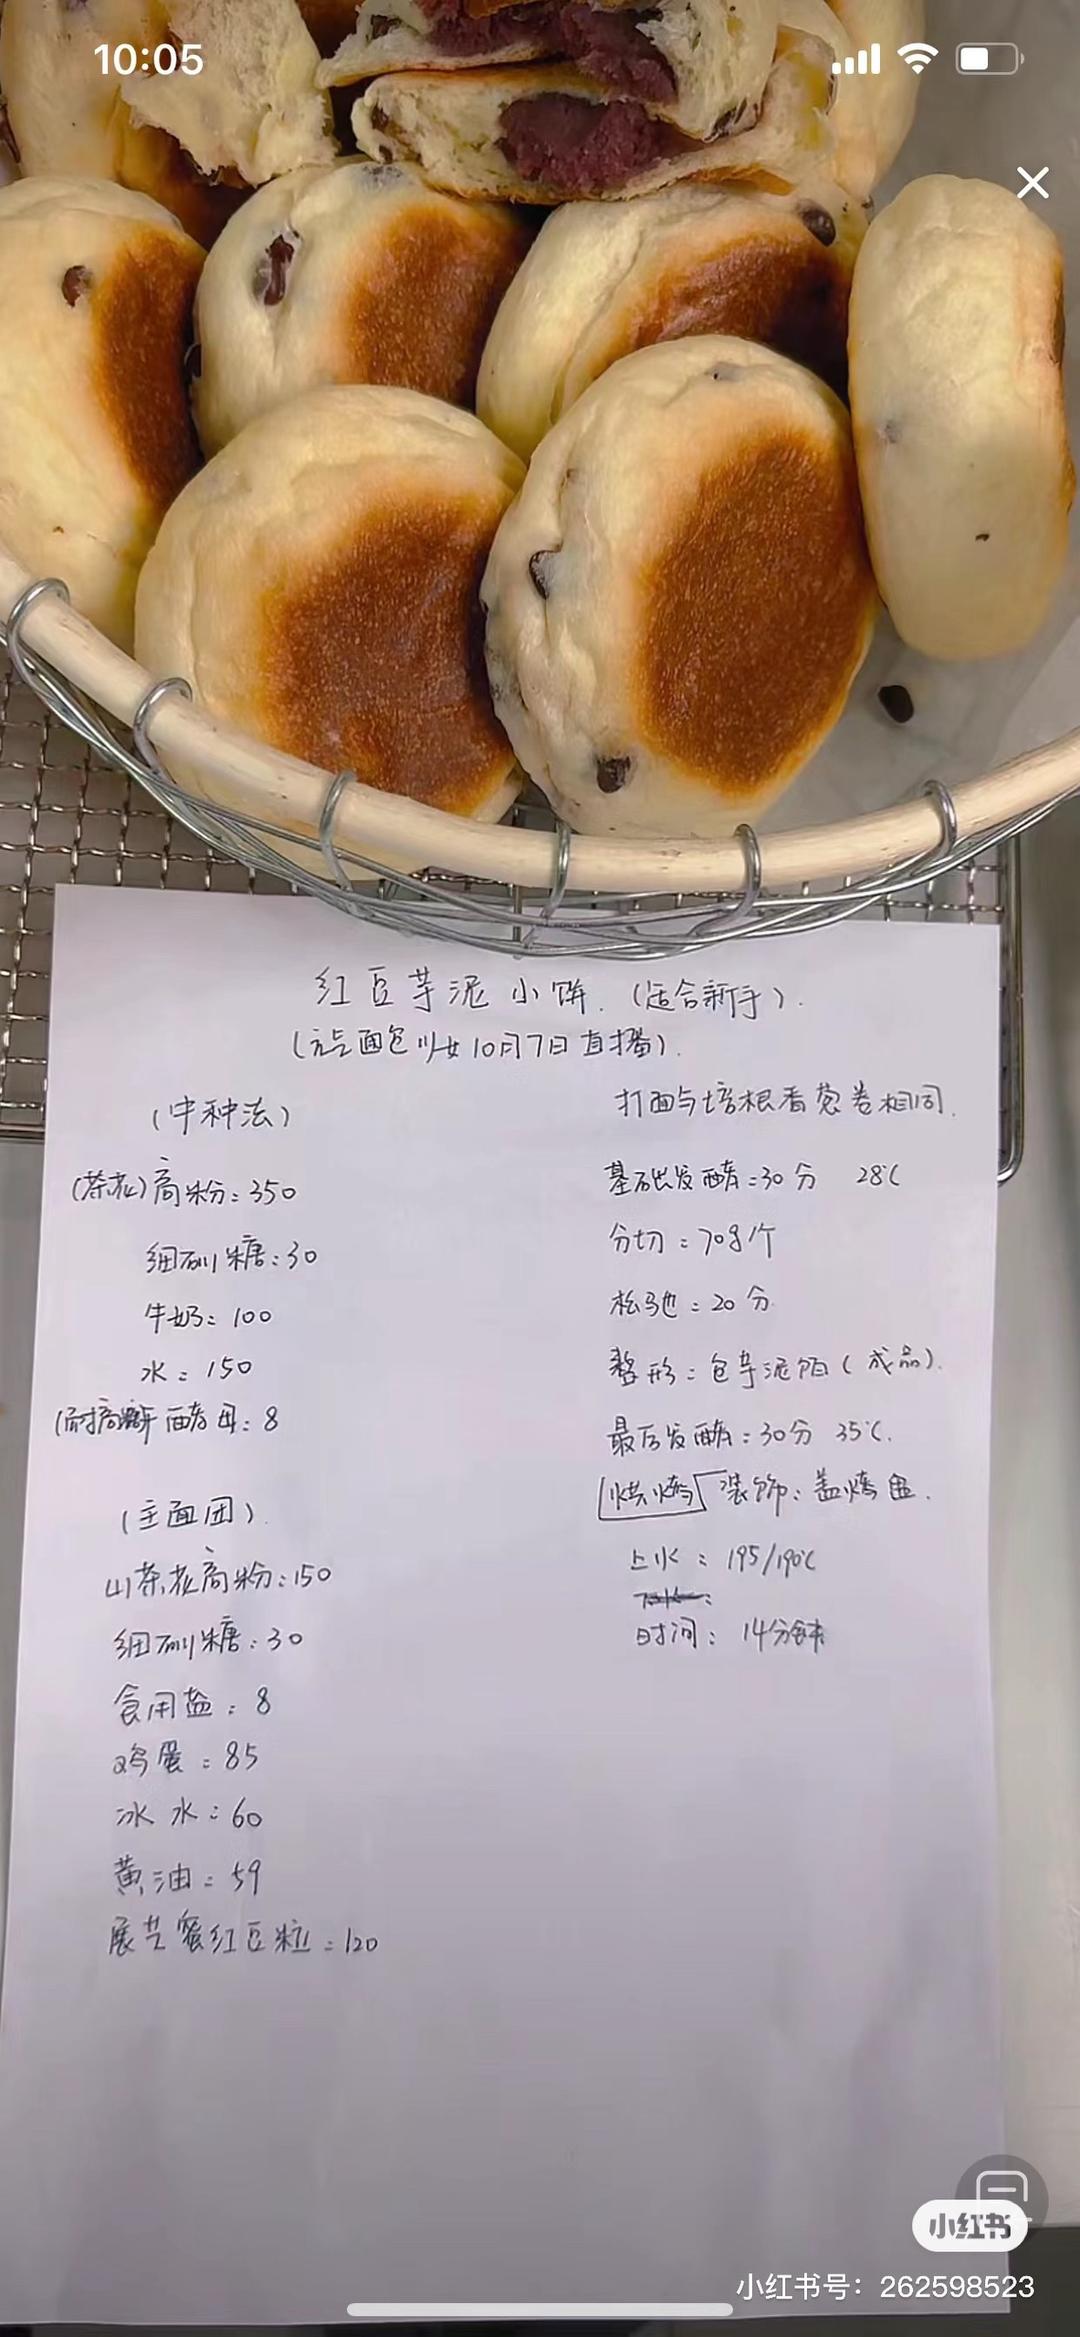 10:05
红豆芋泥小饼.(适合新手).
面包少女10月7日直播).
(中种法)
(茶花)高粉:350
细砂糖:30
牛奶:100
水:150
酵母:8
(主面团).
山茶花高粉:150
细砂糖:30
食用盐:8
鸡蛋:85
冰水:60
黄油:59
展艺蜜红豆粒:120
打面与培根香葱卷相同.
基础发酵:30分 28℃
分切:70g/个
松弛:20分
整形:包芋泥馅(成品).
最后发酵:30分 35℃.
烘烤 装饰:盖烤盘.
上火:195/190℃
时间:14分钟
小红书
小红书号:262598523